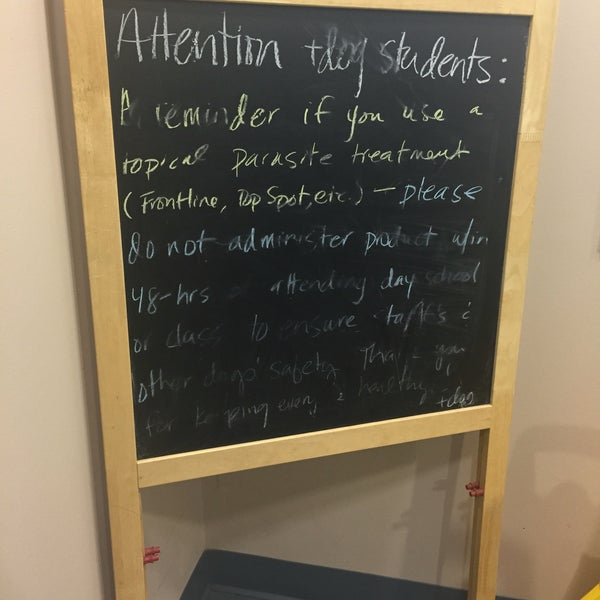 Attention +dog students:
A reminder if you use a
topical parasite treatment
(Frontline, Top Spot, etc.) — please
do not administer product w/in
48-hrs of attending day school
or class to ensure staff's &
other dogs' safety. Thank-you
for keeping every 1 healthy
+dog